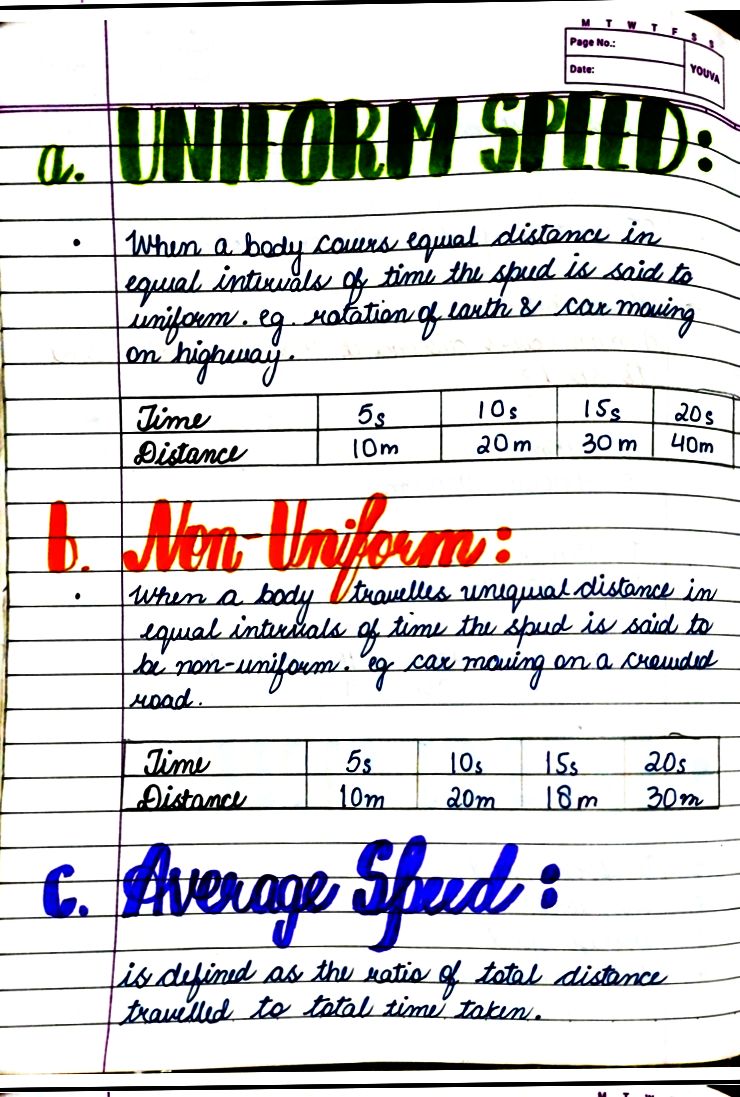 M T W T F S S
Page No.:
Date:
YOUVA
a. UNIFORM SPEED:
• When a body covers equal distance in
equal intervals of time the speed is said to
uniform. eg. rotation of earth & car moving
on highway.
Time 5s 10s 15s 20s
Distance 10m 20m 30m 40m
b. Non-Uniform:
• When a body travelles unequal distance in
equal intervals of time the speed is said to
be non-uniform. eg car moving on a crowded
road.
Time 5s 10s 15s 20s
Distance 10m 20m 18m 30m
c. Average Speed:
is defined as the ratio of total distance
travelled to total time taken.